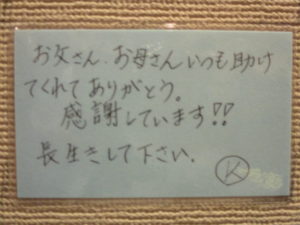 お父さん、お母さんいつも助け
てくれてありがとう。
感謝しています!!
長生きして下さい.
K